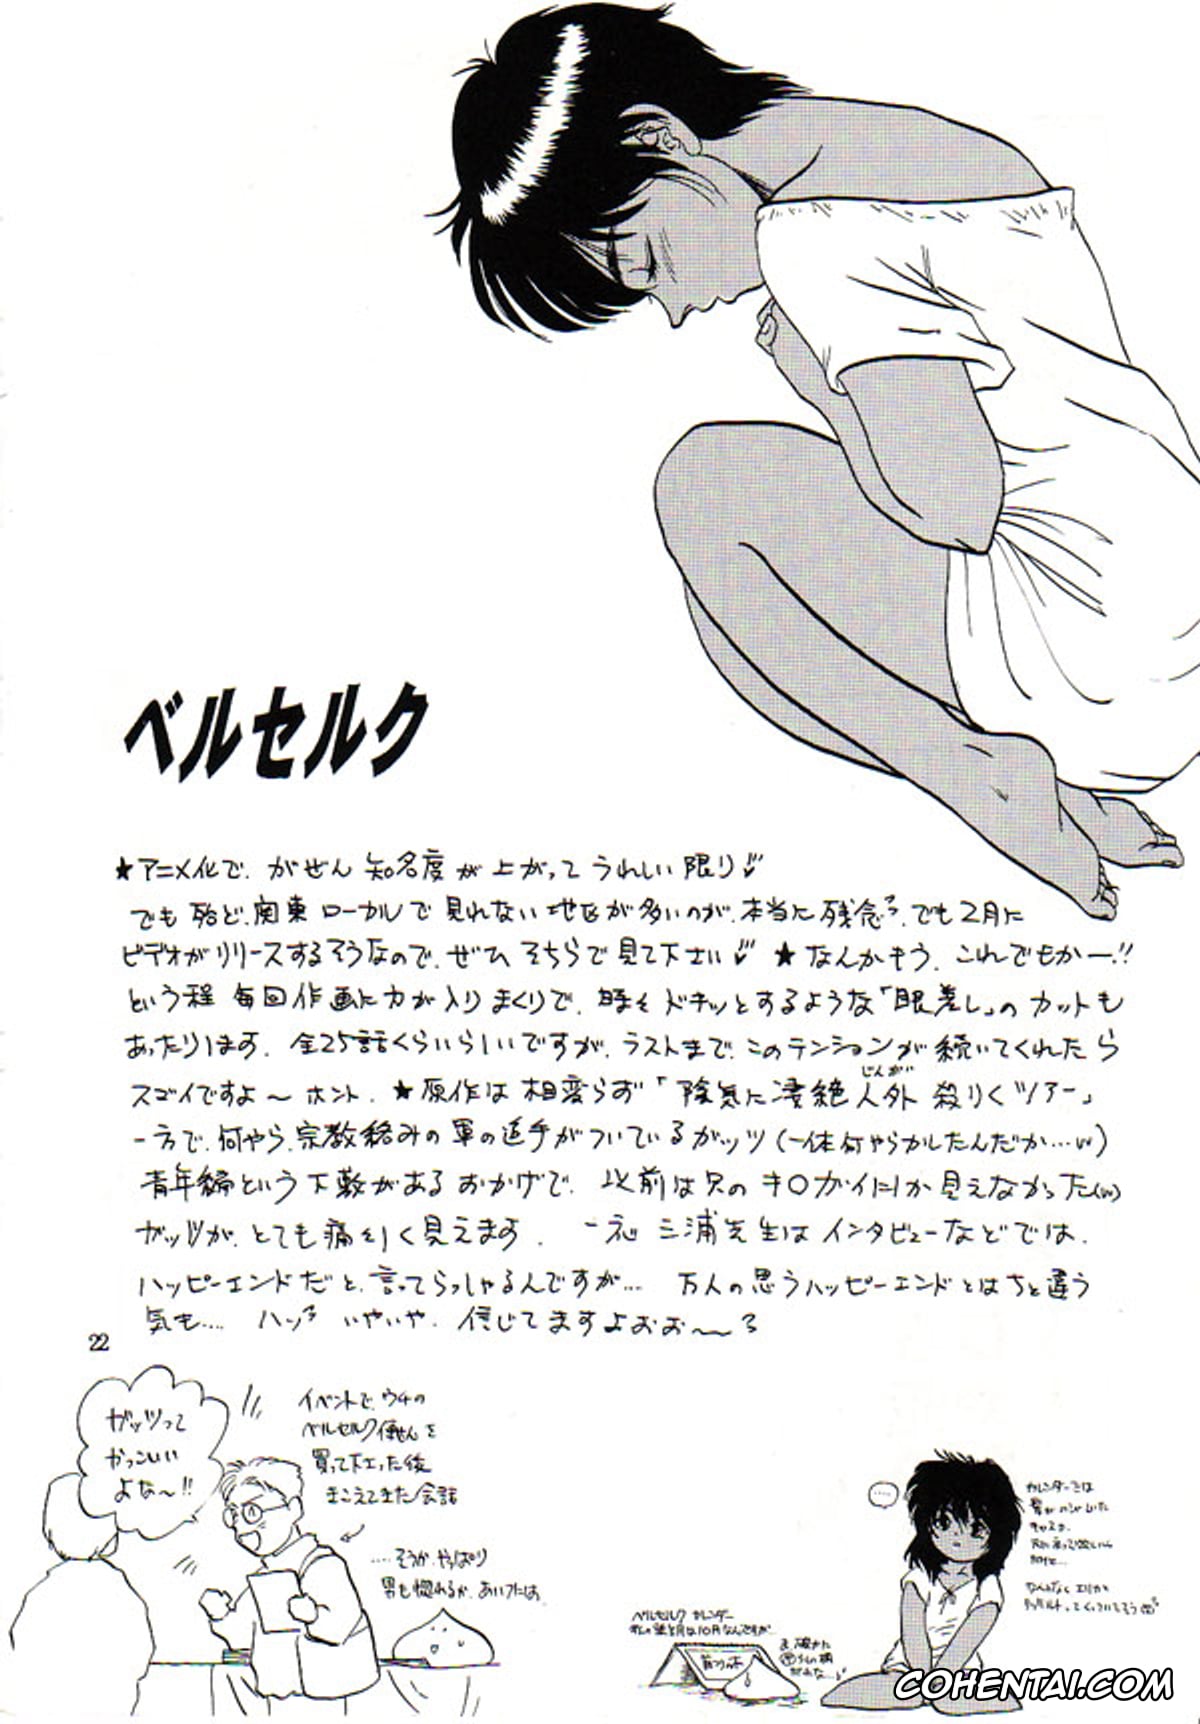 ベルセルク
★アニメ化で、がぜん知名度が上がってうれしい限り
でも殆ど、関東ローカルで見れない地区が多いのが、本当に残念、でも2月に
ビデオがリリースするそうなので、ぜひそちらで見て下さい ★なんかもう、これでもかー!!
という程毎回作画に力が入りまくりで、時々ドキッとするような「眼差し」のカットも
あったりします。全25話くらいらしいですが、ラストまで、このテンションが続いてくれたら
スゴイですよ〜ホント。★原作は相変らず「陰気に凄絶人外殺りくツアー」
じんがい
一方で、何やら、宗教絡みの軍の追手がついているガッツ(一体何やらかしたんだか…w)
青年編という下敷があるおかげで、以前は只のキ○ガイにしか見えなかった(w)
ガッツが、とても痛々しく見えます。一応三浦先生はインタビューなどでは、
ハッピーエンドだと、言ってらっしゃるんですが… 万人の思うハッピーエンドとはちと違う
気も…. ハッ いやいや、信じてますよおお〜
22
ガッツって
かっこいい
よな〜!!
イベントで、ウチの
ベルセルク便せんを
買って下さった後
きこえてきた会話
....そうか、やっぱり
男も惚れるか、あいつには
ベルセルク カレンダー
…
カレンダーでは
COHENTAI.COM